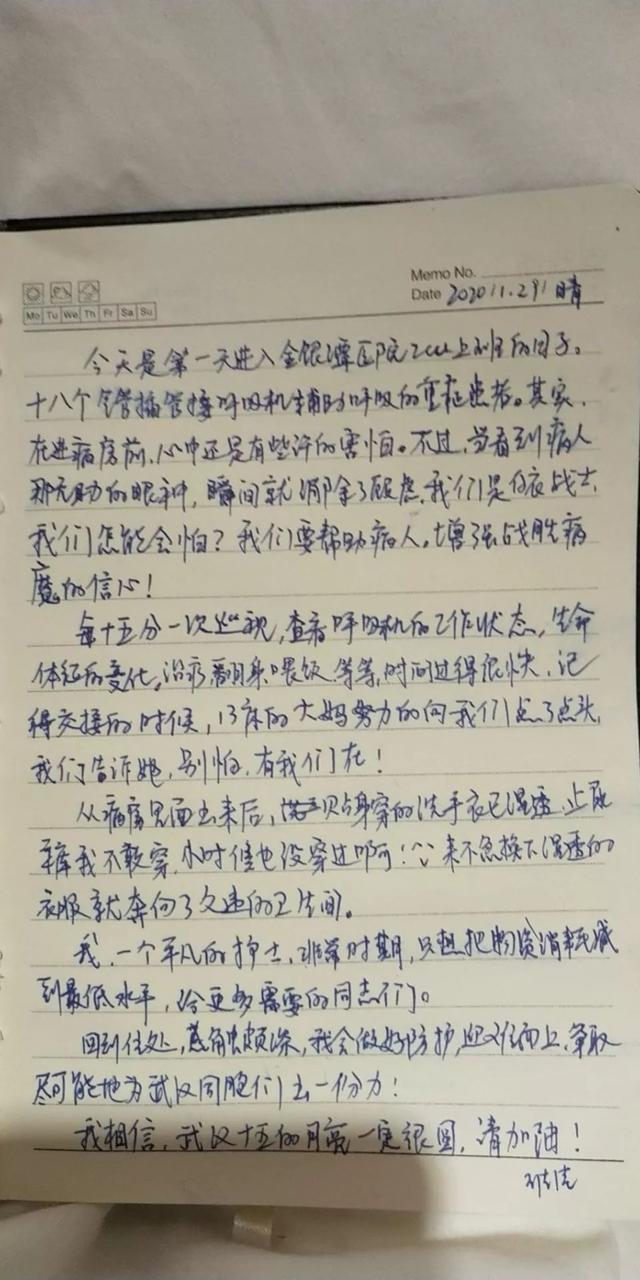 Memo No.
Date 2020.1.29 晴
Mo Tu We Th Fr Sa Su
今天是第一天进入金银潭医院icu上班的日子。
十八个全管插管接呼吸机辅助呼吸的重症患者。其实,
在进病房前,心中还是有些许的害怕。不过,当看到病人
那无助的眼神,瞬间就消除了顾虑,我们是白衣战士,
我们怎能会怕?我们要帮助病人,增强战胜病
魔的信心!
每十五分一次巡视,查看呼吸机的工作状态,生命
体征的变化,治疗翻身喂饭等等,时间过得很快,记
得交接的时候,13床的大妈努力的向我们点了点头,
我们告诉她,别怕,有我们在!
从病房里面出来后,贴身穿的洗手衣已湿透,止尿
裤我不敢穿,小时候也没穿过啊!来不急换下湿透的
衣服就奔向了久违的卫生间。
我,一个平凡的护士,非常时期,只想把物资消耗减
到最低水平,给更多需要的同志们。
回到住处,感触颇深,我会做好防护,迎难而上,争取
尽可能地为武汉同胞们出一份力!
我相信,武汉十五的月亮一定很圆,请加油!